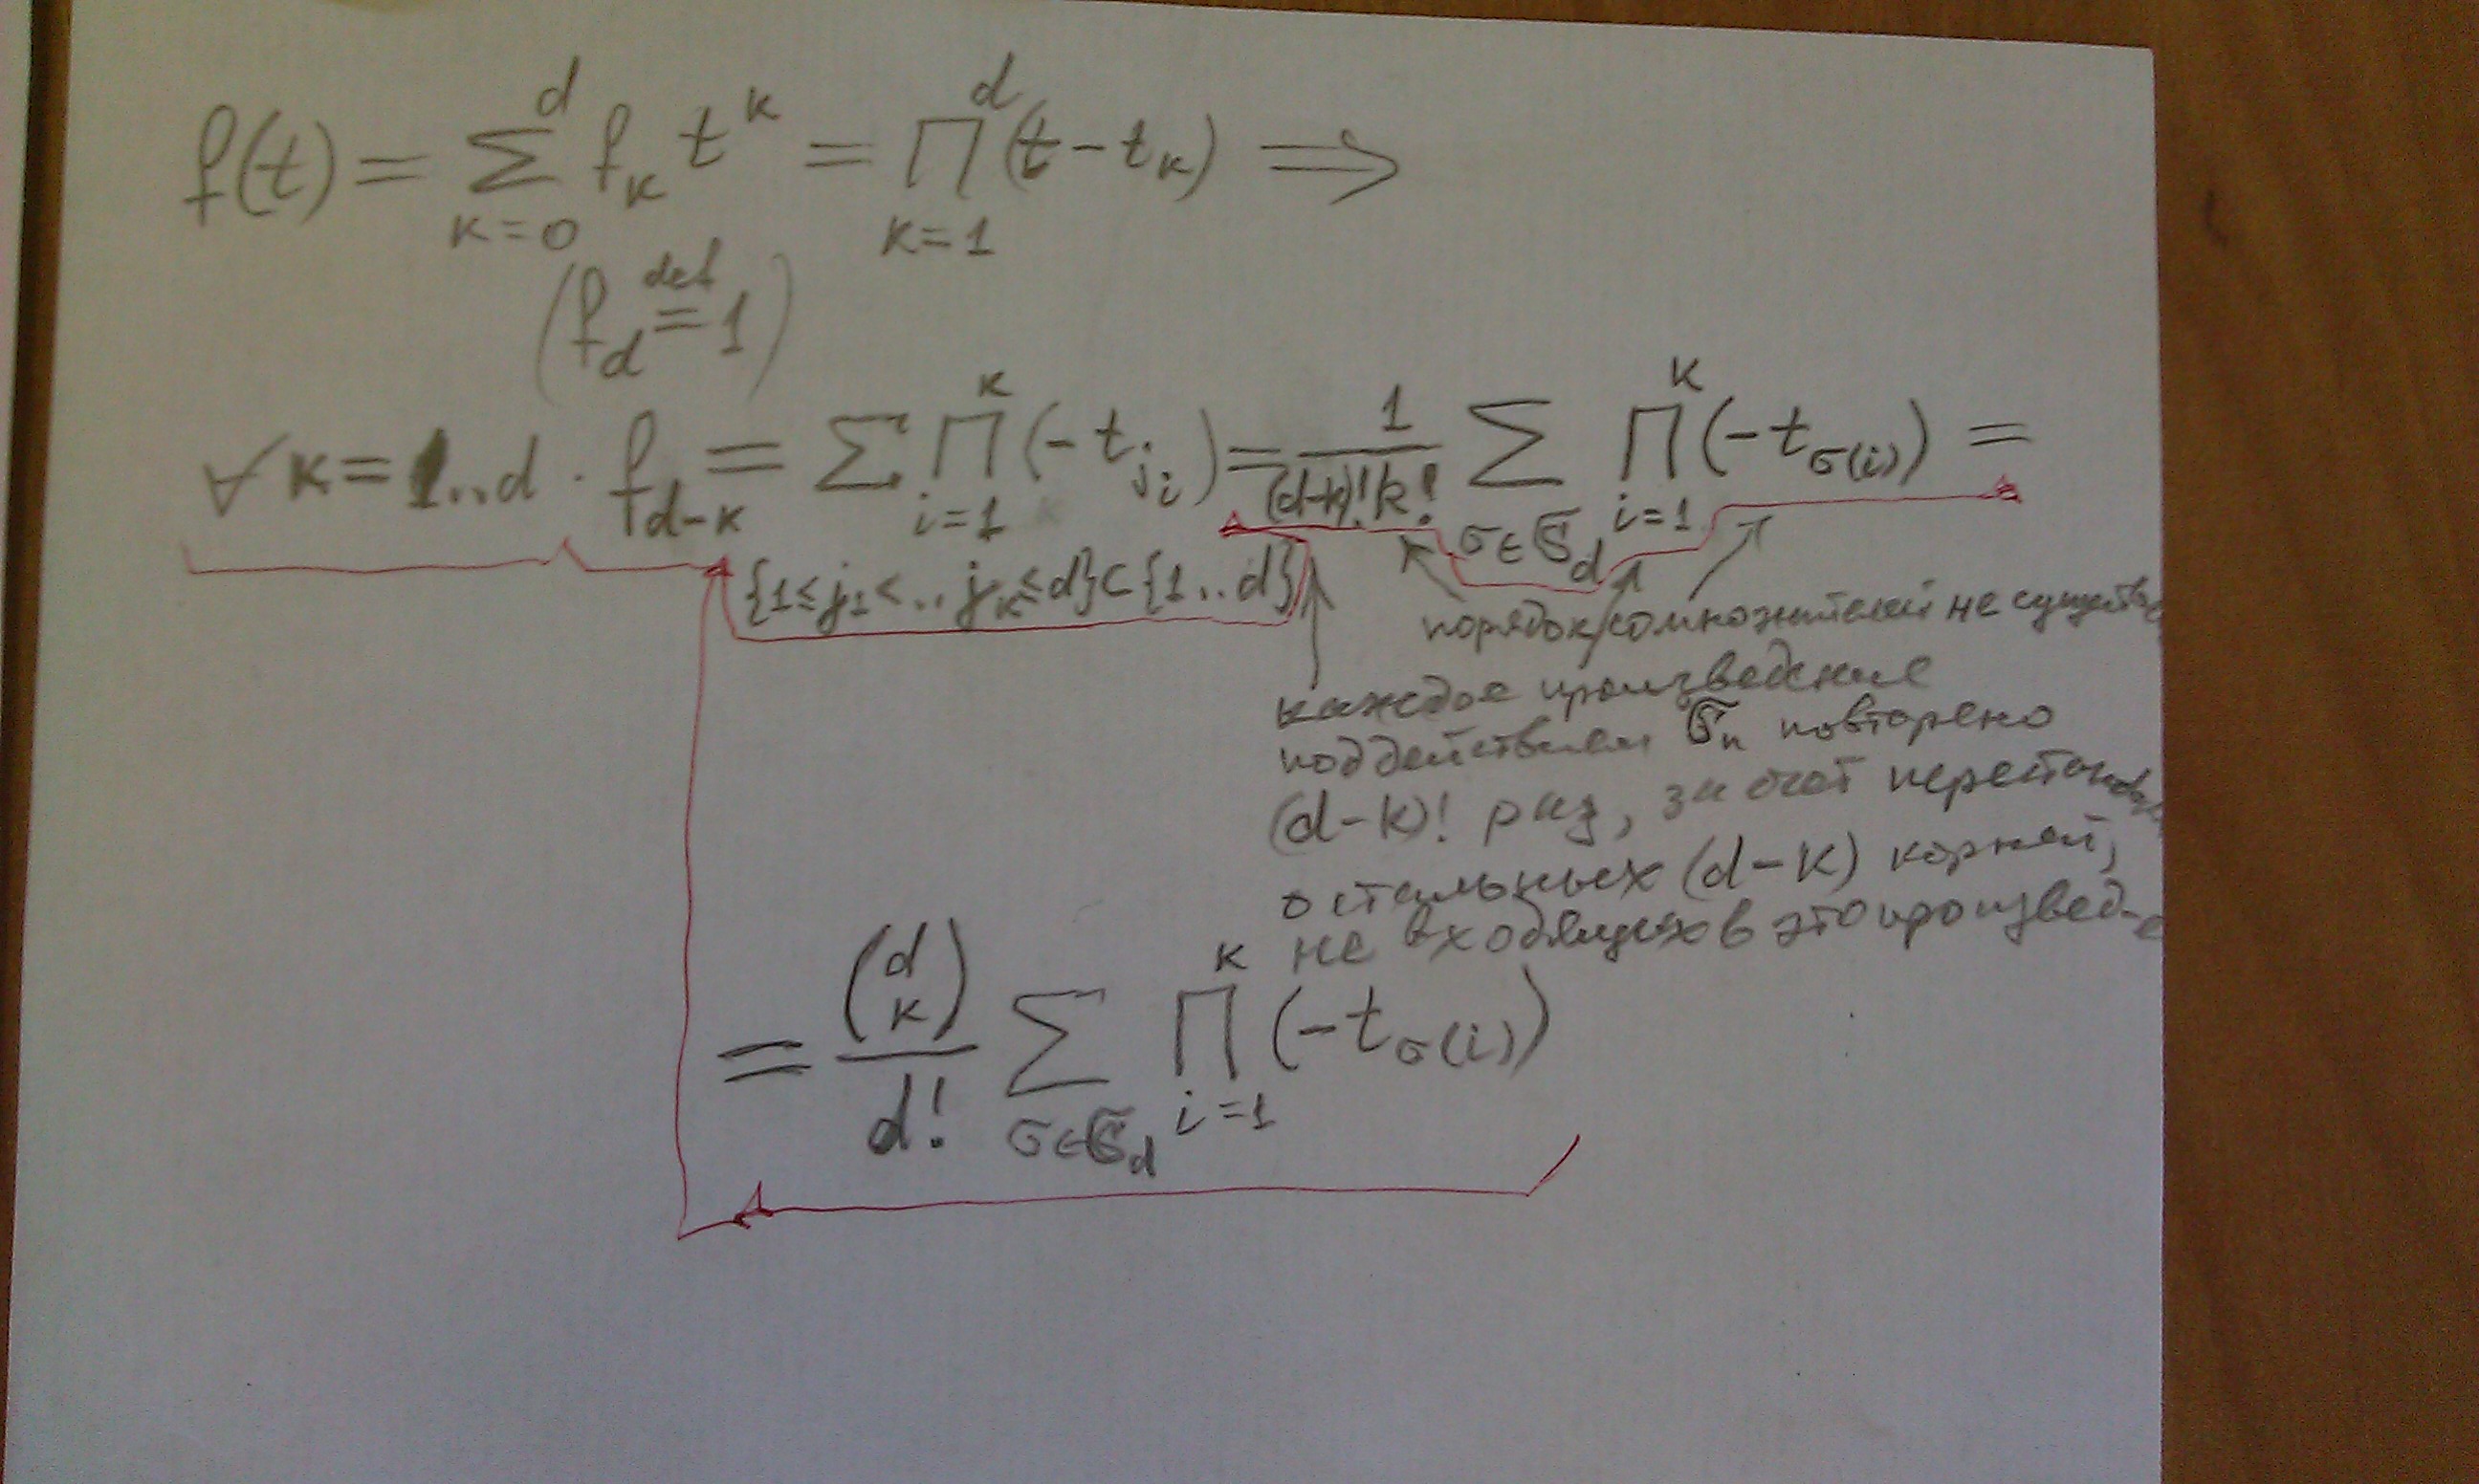 f(t) = ∑_{k=0}^{d} f_k t^k = ∏_{k=1}^{d} (t − t_k) ⟹
(f_d \stackrel{def}{=} 1)
∀ k = 1..d . f_{d−k} = ∑_{\{1≤j_1<..j_k≤d\}⊂\{1..d\}} ∏_{i=1}^{k} (− t_{j_i}) = \frac{1}{(d−k)!k!} ∑_{σ∈𝔖_d} ∏_{i=1}^{k} (−t_{σ(i)}) =
порядок сомножителей не
каждое произведение
под действием 𝔖_n повторено
(d−k)! раз, за счет
остальных (d−k) корней,
не входящих в это произвед-е
= \frac{\binom{d}{k}}{d!} ∑_{σ∈𝔖_d} ∏_{i=1}^{k} (−t_{σ(i)})